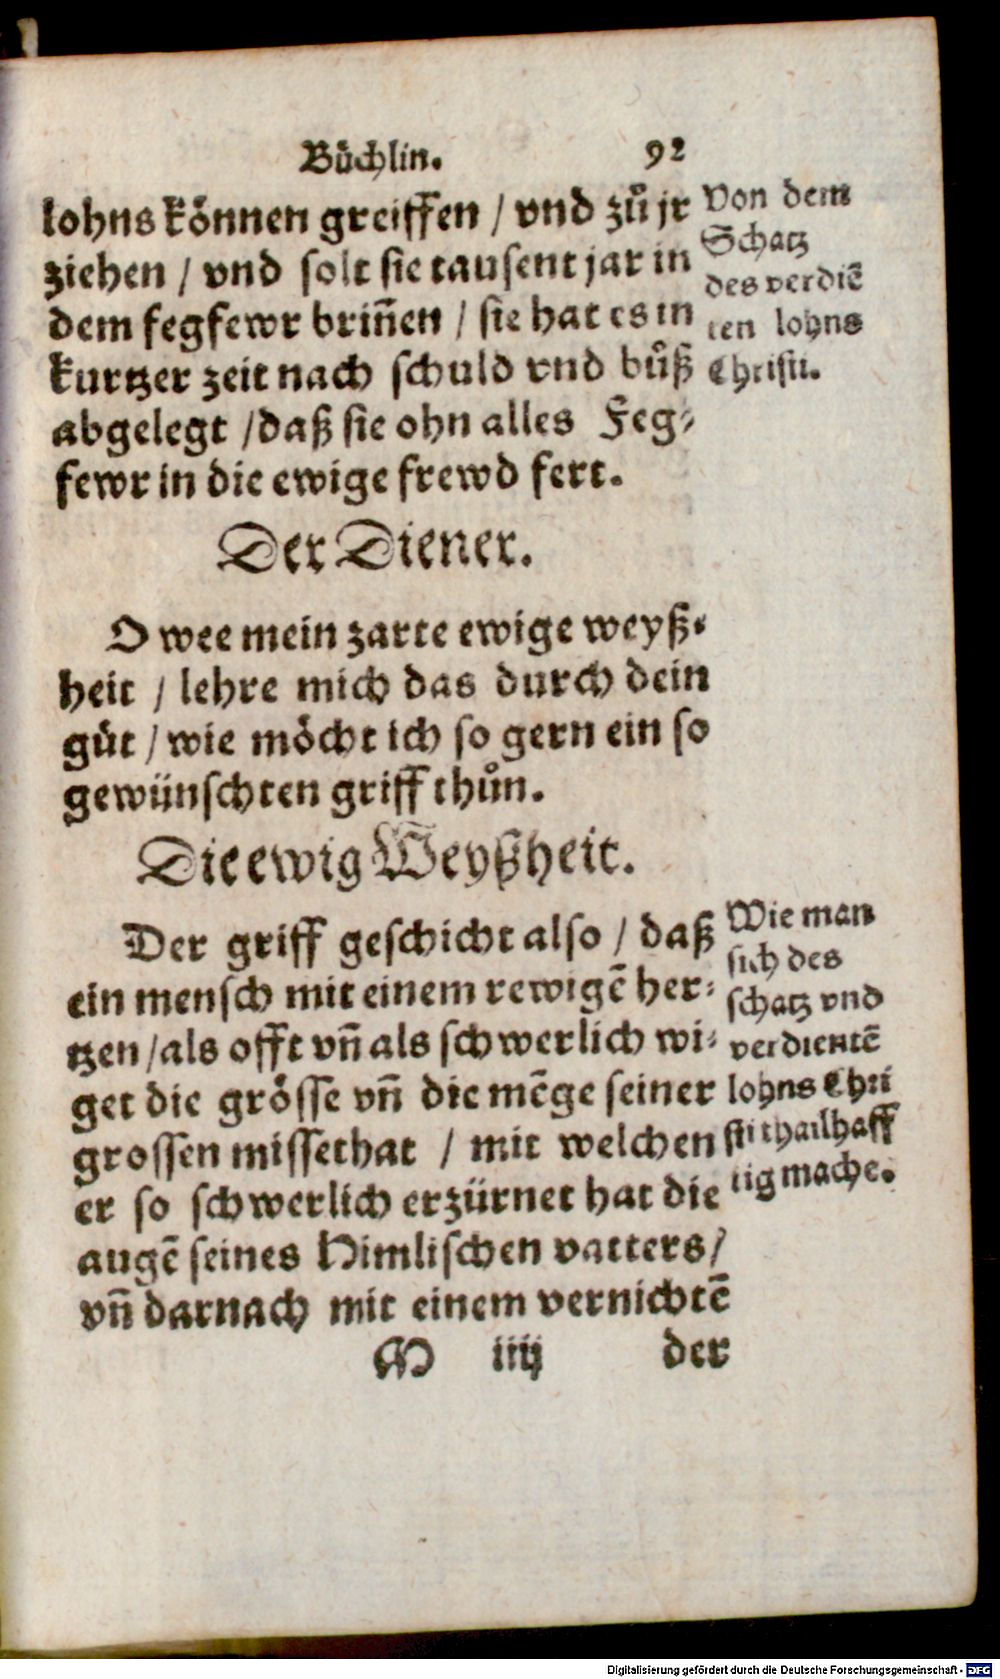 Büchlin. 92
lohns können greiffen / vnd zů jr
ziehen / vnd solt sie tausent jar in
dem fegfewr briñen / sie hat es in
kurtzer zeit nach schuld vnd bůß
abgelegt / daß sie ohn alles Feg⸗
fewr in die ewige frewd fert.
Von dem
Schatz
des verdiē
ten lohns
Christi.
Der Diener.
O wee mein zarte ewige weyß⸗
heit / lehre mich das durch dein
güt / wie möcht ich so gern ein so
gewünschten griff thůn.
Die ewig Weyßheit.
Der griff geschicht also / daß
ein mensch mit einem rewigē her⸗
tzen / als offt vñ als schwerlich wi⸗
get die grösse vñ die mēge seiner
grossen missethat / mit welchen
er so schwerlich erzürnet hat die
augē seines Himlischen vatters /
vñ darnach mit einem vernichtē
Wie man
sich des
schatz vnd
verdientē
lohns Chri
sti thailhaff
tig mache.
M iiij der
Digitalisierung gefördert durch die Deutsche Forschungsgemeinschaft - DFG